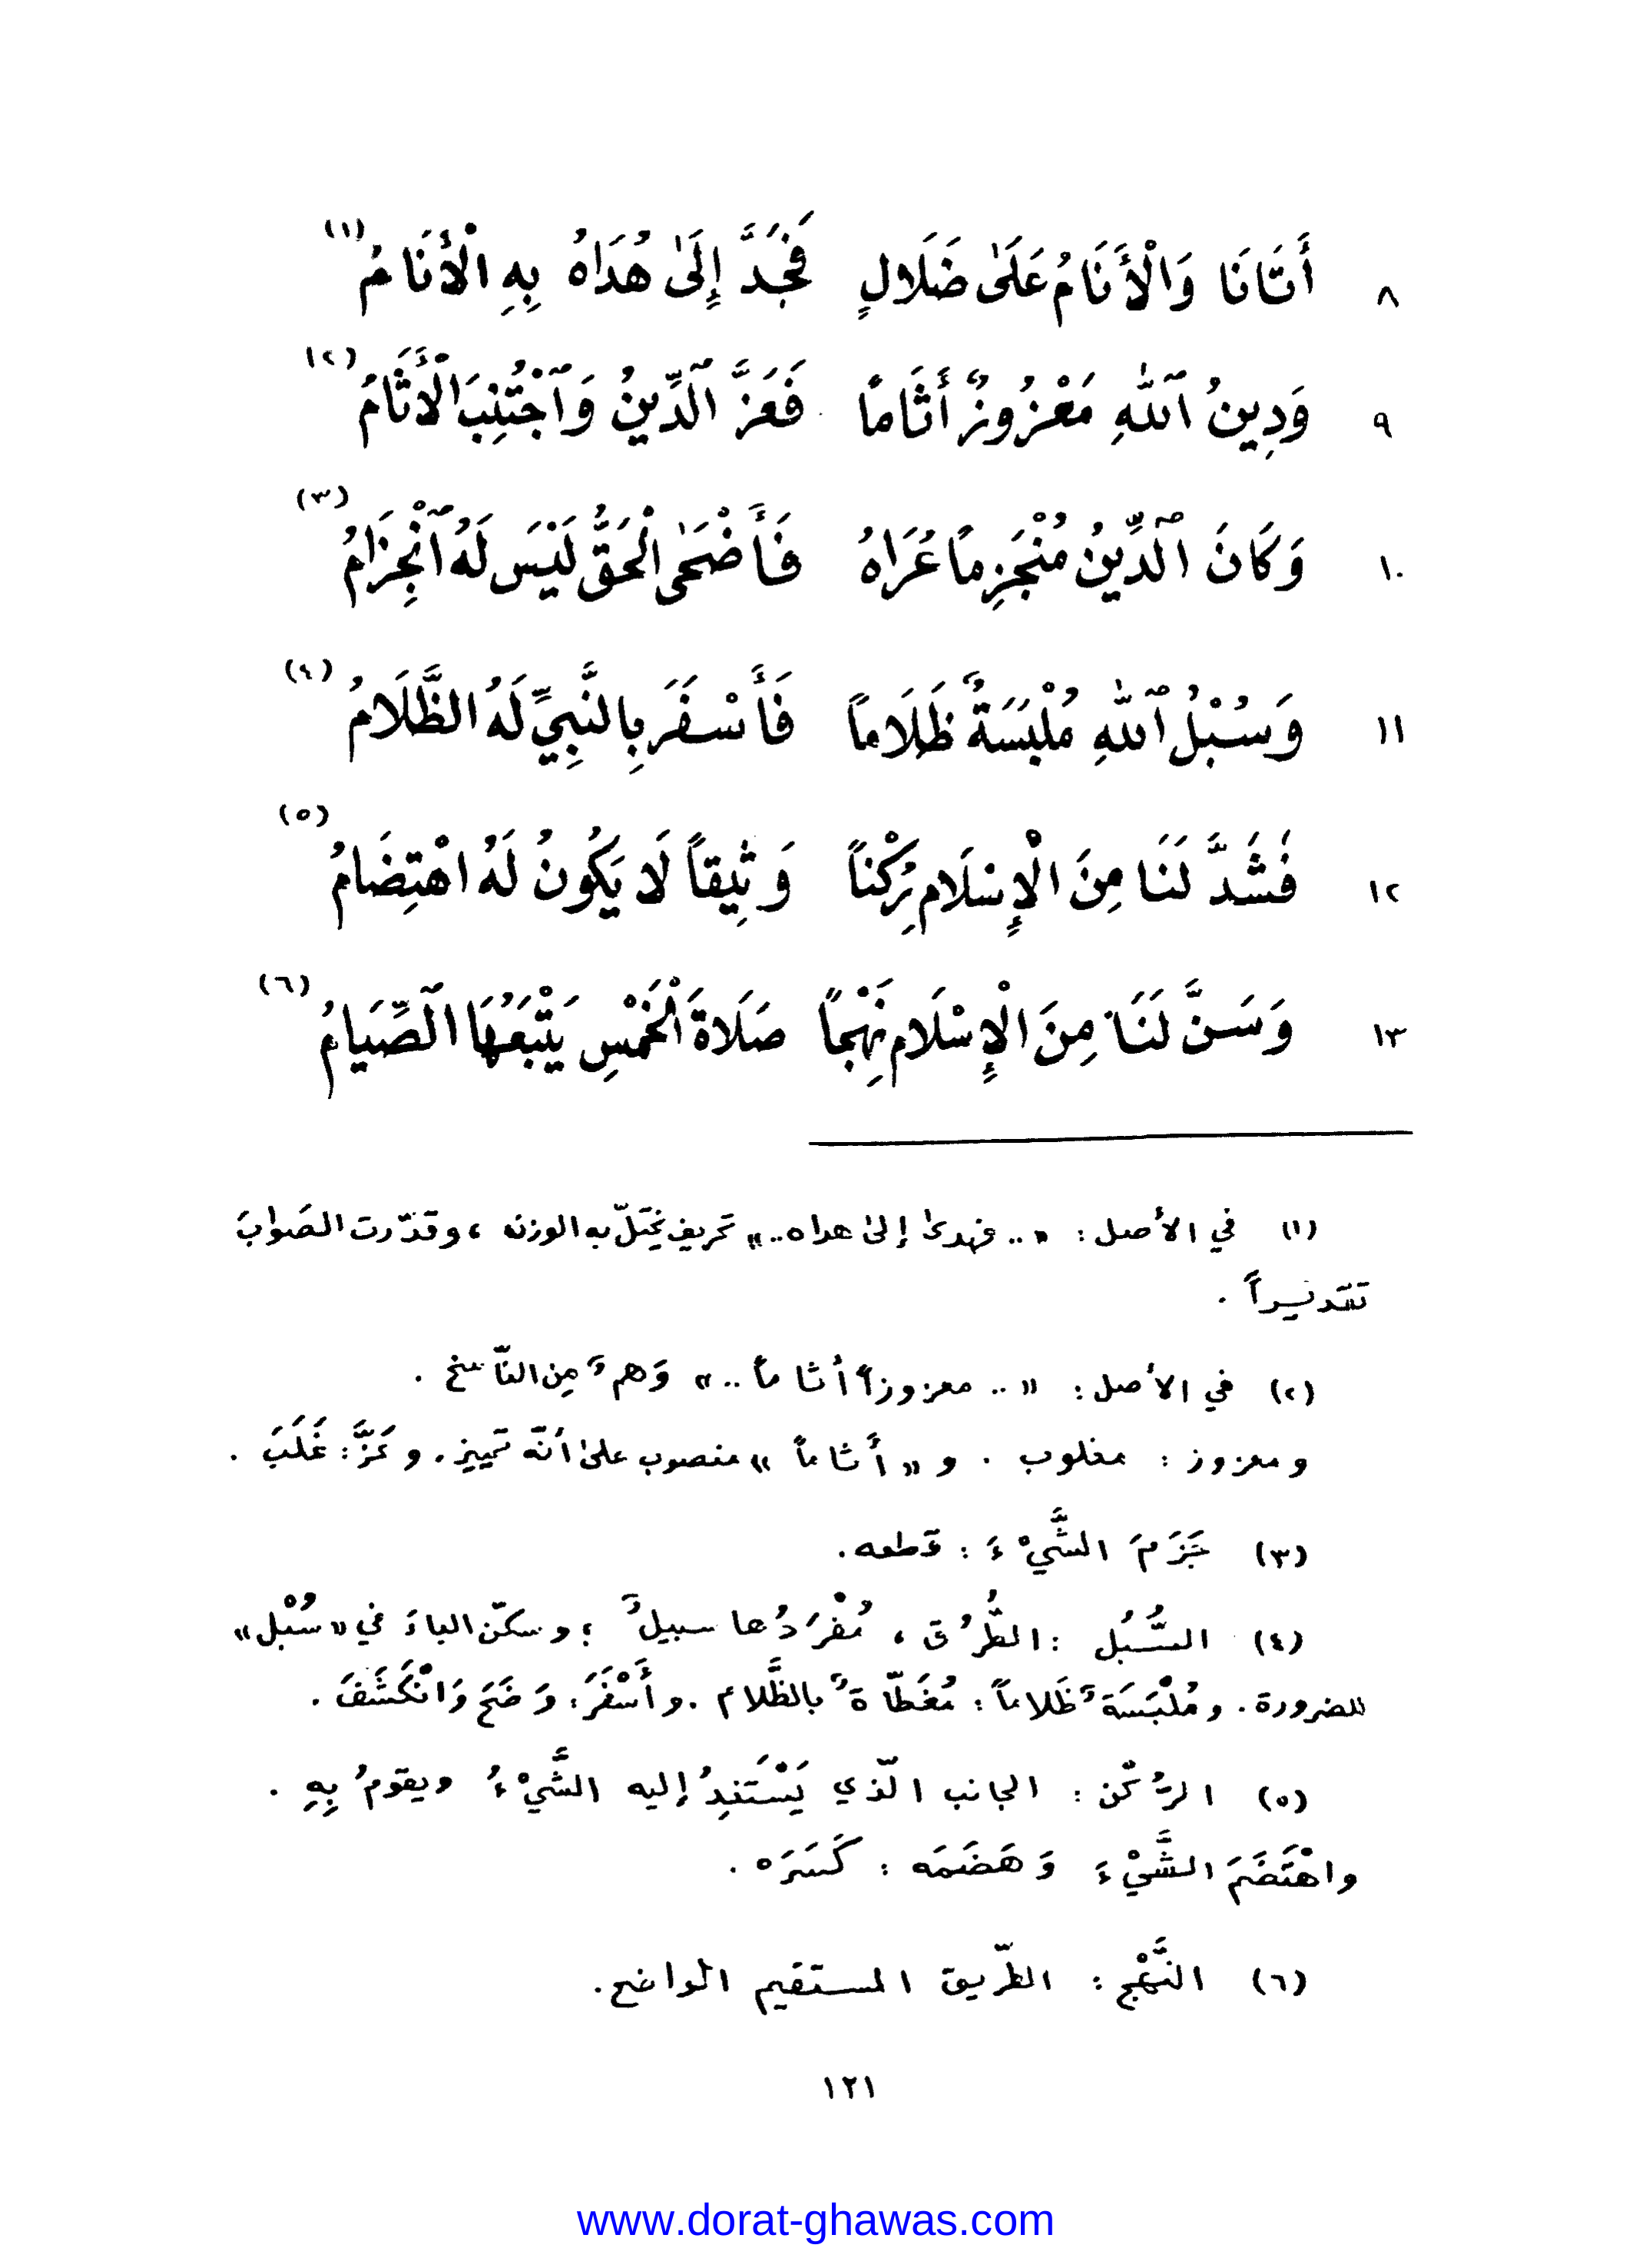 ٨ أَتَانَا وَالْأَنَامُ عَلَىٰ ضَلَالٍ فَجَدَّ إِلَىٰ هُدَاهُ بِهِ الْأَنَامُ (١)
٩ وَدِينُ ٱللهِ مَعْزُوزٌ أَثَاماً فَعَزَّ ٱلدِّينُ وَٱجْتُنِبَ الْأَثَامُ (٢)
١٠ وَكَانَ ٱلدِّينُ مُنْجَزِماً عُرَاهُ فَأَضْحَى الْحَقُّ لَيْسَ لَهُ ٱنْجِزَامُ (٣)
١١ وَسُبْلُ ٱللهِ مُلْبَسَةٌ ظَلَاماً فَأَسْفَرَ بِالنَّبِيِّ لَهُ الظَّلَامُ (٤)
١٢ فَشَدَّ لَنَا مِنَ الْإِسْلَامِ رُكْناً وَثِيقاً لَا يَكُونُ لَهُ اهْتِضَامُ (٥)
١٣ وَسَنَّ لَنَا مِنَ الْإِسْلَامِ نَهْجاً صَلَاةَ الْخَمْسِ يَتْبَعُهَا ٱلصِّيَامُ (٦)
(١) في الأصل : « .. فهدىٰ إلىٰ هداه .. » تحريف يختلّ به الوزن ، وقدّرت الصَوابَ
تقديراً .
(٢) في الأصل : « .. معزوزاً أثاماً .. » وَهمٌ مِن النّاسخ .
ومعزوز : مغلوب . و « أَثاماً » منصوب علىٰ أنّه تمييز . وعَزَّ : غَلَبَ .
(٣) جَزَمَ الشَّيْءَ : قطعه .
(٤) السُّبُل : الطُّرُق ، مُفْرَدُها سبيلٌ ؛ وسكّن الباءَ في « سُبْل »
للضرورة . ومُلْبَسَةٌ ظَلاماً : مُغَطّاةٌ بالظَّلام . وأَسْفَرَ : وَضَحَ وَانْكَشَفَ .
(٥) الرُّكْن : الجانب الّذي يَسْتَنِدُ إليه الشَّيْءُ ويقومُ بِهِ .
واهْتَضَمَ الشَّيْءَ وَهَضَمَه : كَسَرَه .
(٦) النَّهْج : الطّريق المستقيم الواضح .
١٢١
www.dorat-ghawas.com